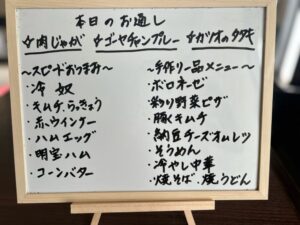 本日のお通し
☆肉じゃが ☆ゴーヤチャンプルー ☆カツオのタタキ
〜スピードおつまみ〜
・冷奴
・キムチ、らっきょう
・赤ウインナー
・ハムエッグ
・明宝ハム
・コーンバター
〜手作り一品メニュー〜
・ボロネーゼ
・彩り野菜ピザ
・豚キムチ
・納豆チーズオムレツ
・そうめん
・冷やし中華
・焼そば・焼うどん